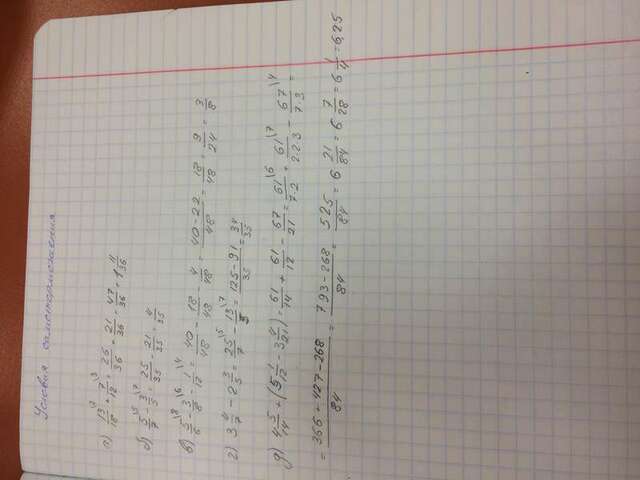 Условия самоторможения.
а) 13/18 \2 + 7/12 \3 = 26/36 + 21/36 = 47/36 = 1 11/36
б) 5/7 \5 - 3/5 \7 = 25/35 - 21/35 = 4/35
в) 5/6 \8 - 3/8 \6 - 1/12 \4 = 40/48 - 18/48 - 4/48 = 40-22/48 = 18/48 = 9/24 = 3/8
г) 3 4/7 - 2 3/5 = 25/7 \5 - 13/5 \7 = 125-91/35 = 34/35
д) 4 5/14 + (5 1/12 - 3 4/21) = 61/14 + 61/12 - 67/21 = 61/7·2 \6 + 61/2·2·3 \7 - 67/7·3 \4 =
= 366+427-268/84 = 793-268/84 = 525/84 = 6 21/84 = 6 7/28 = 6 1/4 = 6,25